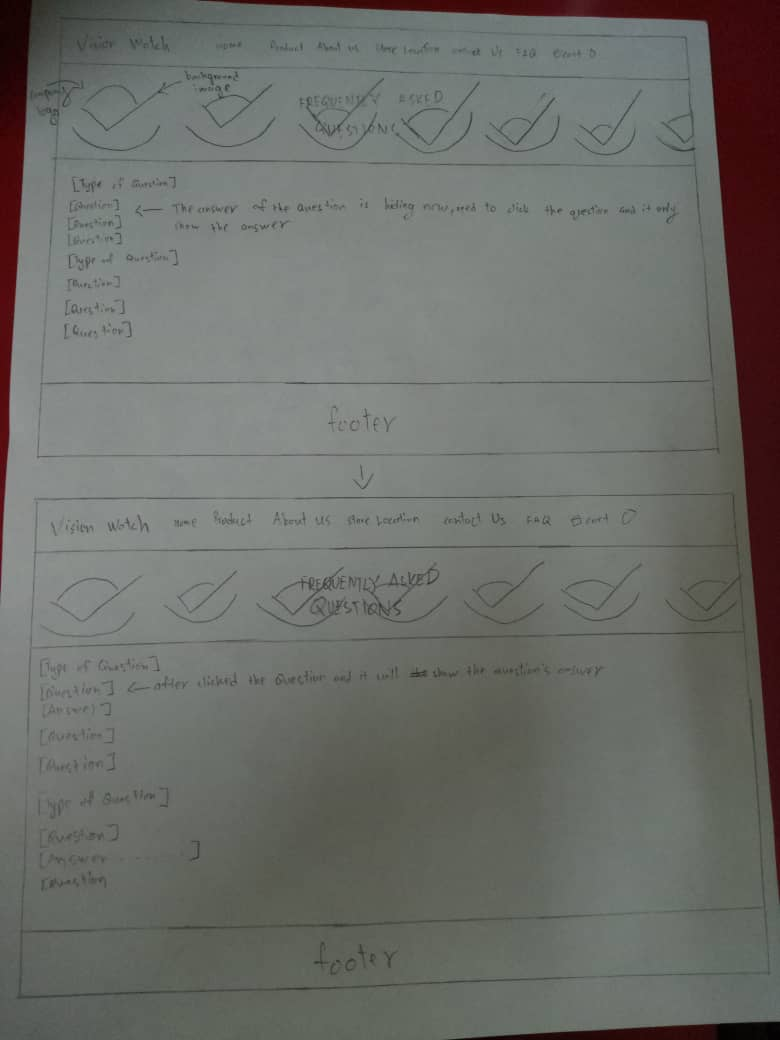 Vision Watch Home Product About us Store Location contact Us FAQ cart 0
company logo
background image
FREQUENTLY ASKED
QUESTIONS
[Type of Question]
[Question] ← The answer of the question is hiding now, need to click the question and it only
[Question] show the answer
[Question]
[Type of Question]
[Question]
[Question]
[Question]
footer
Vision Watch Home Product About Us Store Location contact Us FAQ cart 0
FREQUENTLY ASKED
QUESTIONS
[Type of Question]
[Question] ← after clicked the Question and it will show the question's answer
[Answer]
[Question]
[Question]
[Type of Question]
[Question]
[Answer ........]
[Question
footer